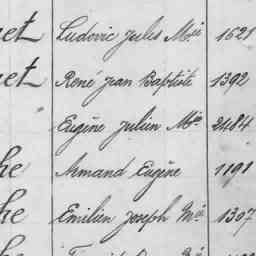 net Ludovic Jules Mie 1621
net René Jean Baptiste 1392
" Eugène Julien Mie 2484
he Armand Eugène 1191
he Emilien Joseph Mie 1307